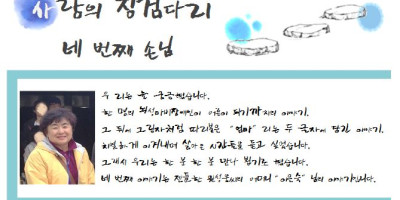 사람의 징검다리
네 번째 손님
우리는 늘 궁금했습니다.
한 명의 뇌성마비장애인이 어른이 되기까지의 이야기.
그 뒤에 그림자처럼 따라붙은 "엄마" 라는 두 글자에 담긴 이야기.
치열하게 이겨내며 살아온 시간들을 듣고 싶었습니다.
그래서 우리는 한 분 한 분 만나 뵙기로 했습니다.
네 번째 이야기는 님의 이야기입니다.